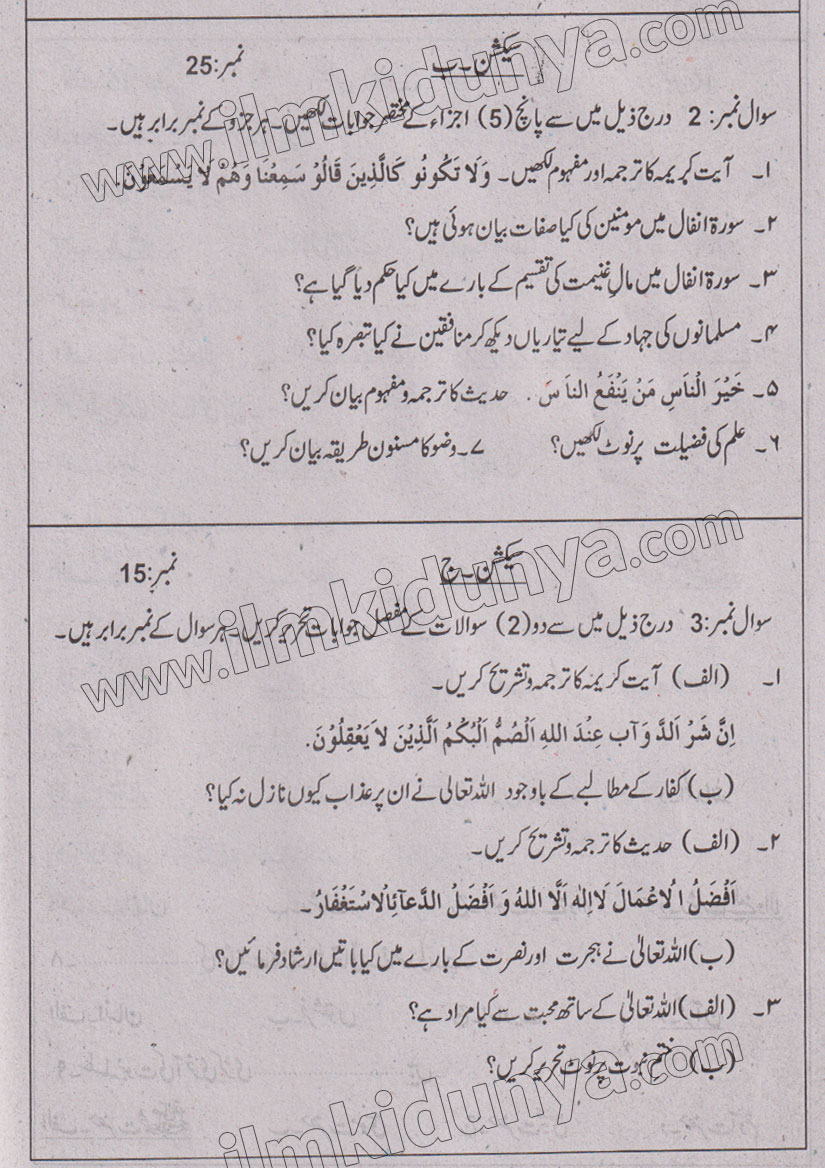 سیکشن ۔ ب نمبر:25
سوال نمبر: 2 درج ذیل میں سے پانچ (5) اجزاء کے مختصر جوابات لکھیں۔ ہر جزو کے نمبر برابر ہیں۔
۱۔ آیت کریمہ کا ترجمہ اور مفہوم لکھیں۔ وَلَا تَکُونُو کَالَّذِینَ قَالُوْ سَمِعْنَا وَھُمْ لَا یَسْمَعُوْنَ.
۲۔ سورۃ انفال میں مومنین کی کیا صفات بیان ہوئی ہیں؟
۳۔ سورۃ انفال میں مالِ غنیمت کی تقسیم کے بارے میں کیا حکم دیا گیا ہے؟
۴۔ مسلمانوں کی جہاد کے لیے تیاریاں دیکھ کر منافقین نے کیا تبصرہ کیا؟
۵۔ خَیْرَ الْنَاسِ مَنْ یَنْفَعُ النا َسَ . حدیث کا ترجمہ و مفہوم بیان کریں؟
۶۔ علم کی فضیلت پر نوٹ لکھیں؟ ۷۔ وضو کا مسنون طریقہ بیان کریں؟
سیکشن ۔ ج نمبر:15
سوال نمبر: 3 درج ذیل میں سے دو (2) سوالات کے مفصل جوابات تحریر کریں۔ ہر سوال کے نمبر برابر ہیں۔
۱۔ (الف) آیت کریمہ کا ترجمہ و تشریح کریں۔
اِنَّ شَرْ اَلدَّ وَ آب عِنْدَ اللهِ اَلْصُمُّ اَلْبُکْمُ اَلَّذِیْنَ لاَ یَعْقِلُوْنَ.
(ب) کفار کے مطالبے کے باوجود اللہ تعالی نے ان پر عذاب کیوں نازل نہ کیا؟
۲۔ (الف) حدیث کا ترجمہ و تشریح کریں۔
اَفْضَلُ ا لْاعْمَالَ لَااِلٰهَ اَلَّا اللهُ وَ اَفْضَلُ الدَّعَآئِالْاسْتَغْفَارُ۔
(ب) اللہ تعالیٰ نے ہجرت اور نصرت کے بارے میں کیا باتیں ارشاد فرمائیں؟
۳۔ (الف) اللہ تعالیٰ کے ساتھ محبت سے کیا مراد ہے؟
(ب) ختمِ نبوت پر نوٹ تحریر کریں؟
www.ilmkidunya.com
www.ilmkidunya.com
ilmkidunya.com